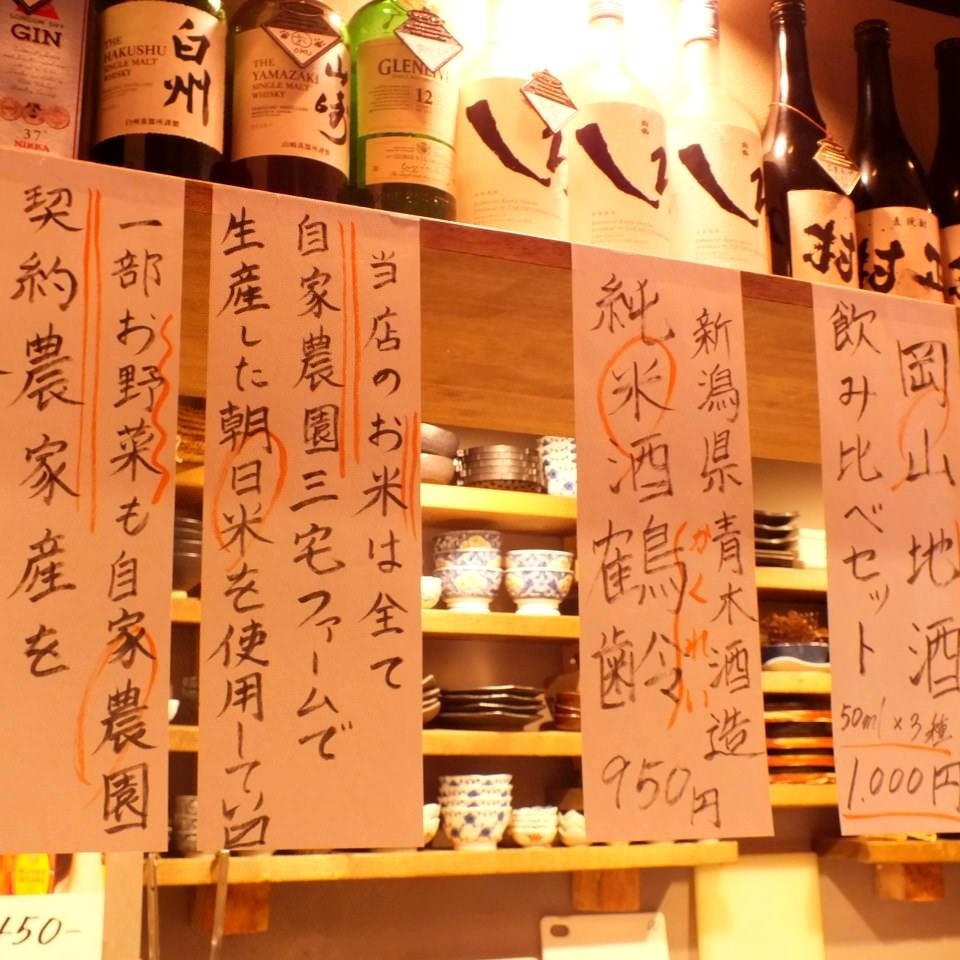 GIN
37°
NIKKA
THE
HAKUSHU
SINGLE MALT
WHISKY
白州
THE
YAMAZAKI
SINGLE MALT
WHISKY
山崎
GLENLIVE
12
村
村
岡山地酒
飲み比べセット
50ml×3種
1.000円
新潟県青木酒造
純米酒鶴齢
かくれい
950円
当店のお米は全て
自家農園三宅ファームで
生産した朝日米を使用してい
一部お野菜も自家農園
契約農家産を
450-